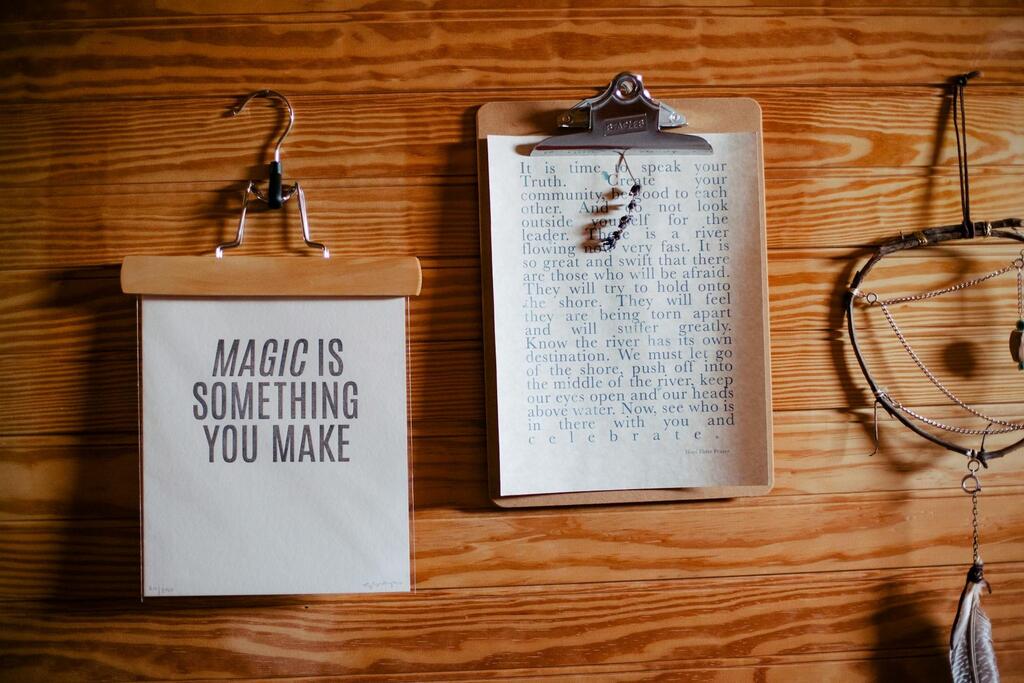 MAGIC IS
SOMETHING
YOU MAKE
It is time to speak your
Truth. Create your
community, be good to each
other. And do not look
outside yourself for the
leader. There is a river
flowing now very fast. It is
so great and swift that there
are those who will be afraid.
They will try to hold onto
the shore. They will feel
they are being torn apart
and will suffer greatly.
Know the river has its own
destination. We must let go
of the shore, push off into
the middle of the river, keep
our eyes open and our heads
above water. Now, see who is
in there with you and
celebrate.
Hopi Elder Prayer